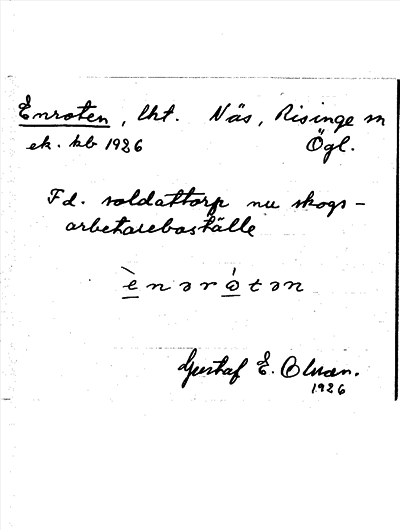 Enroten, lht. Näs, Risinge sn
ek. kb 1926 Ögl.
Fd. soldattorp nu skogs-
arbetareboställe
è n ə r ó t ə n
Gustaf E. Olsson.
1926